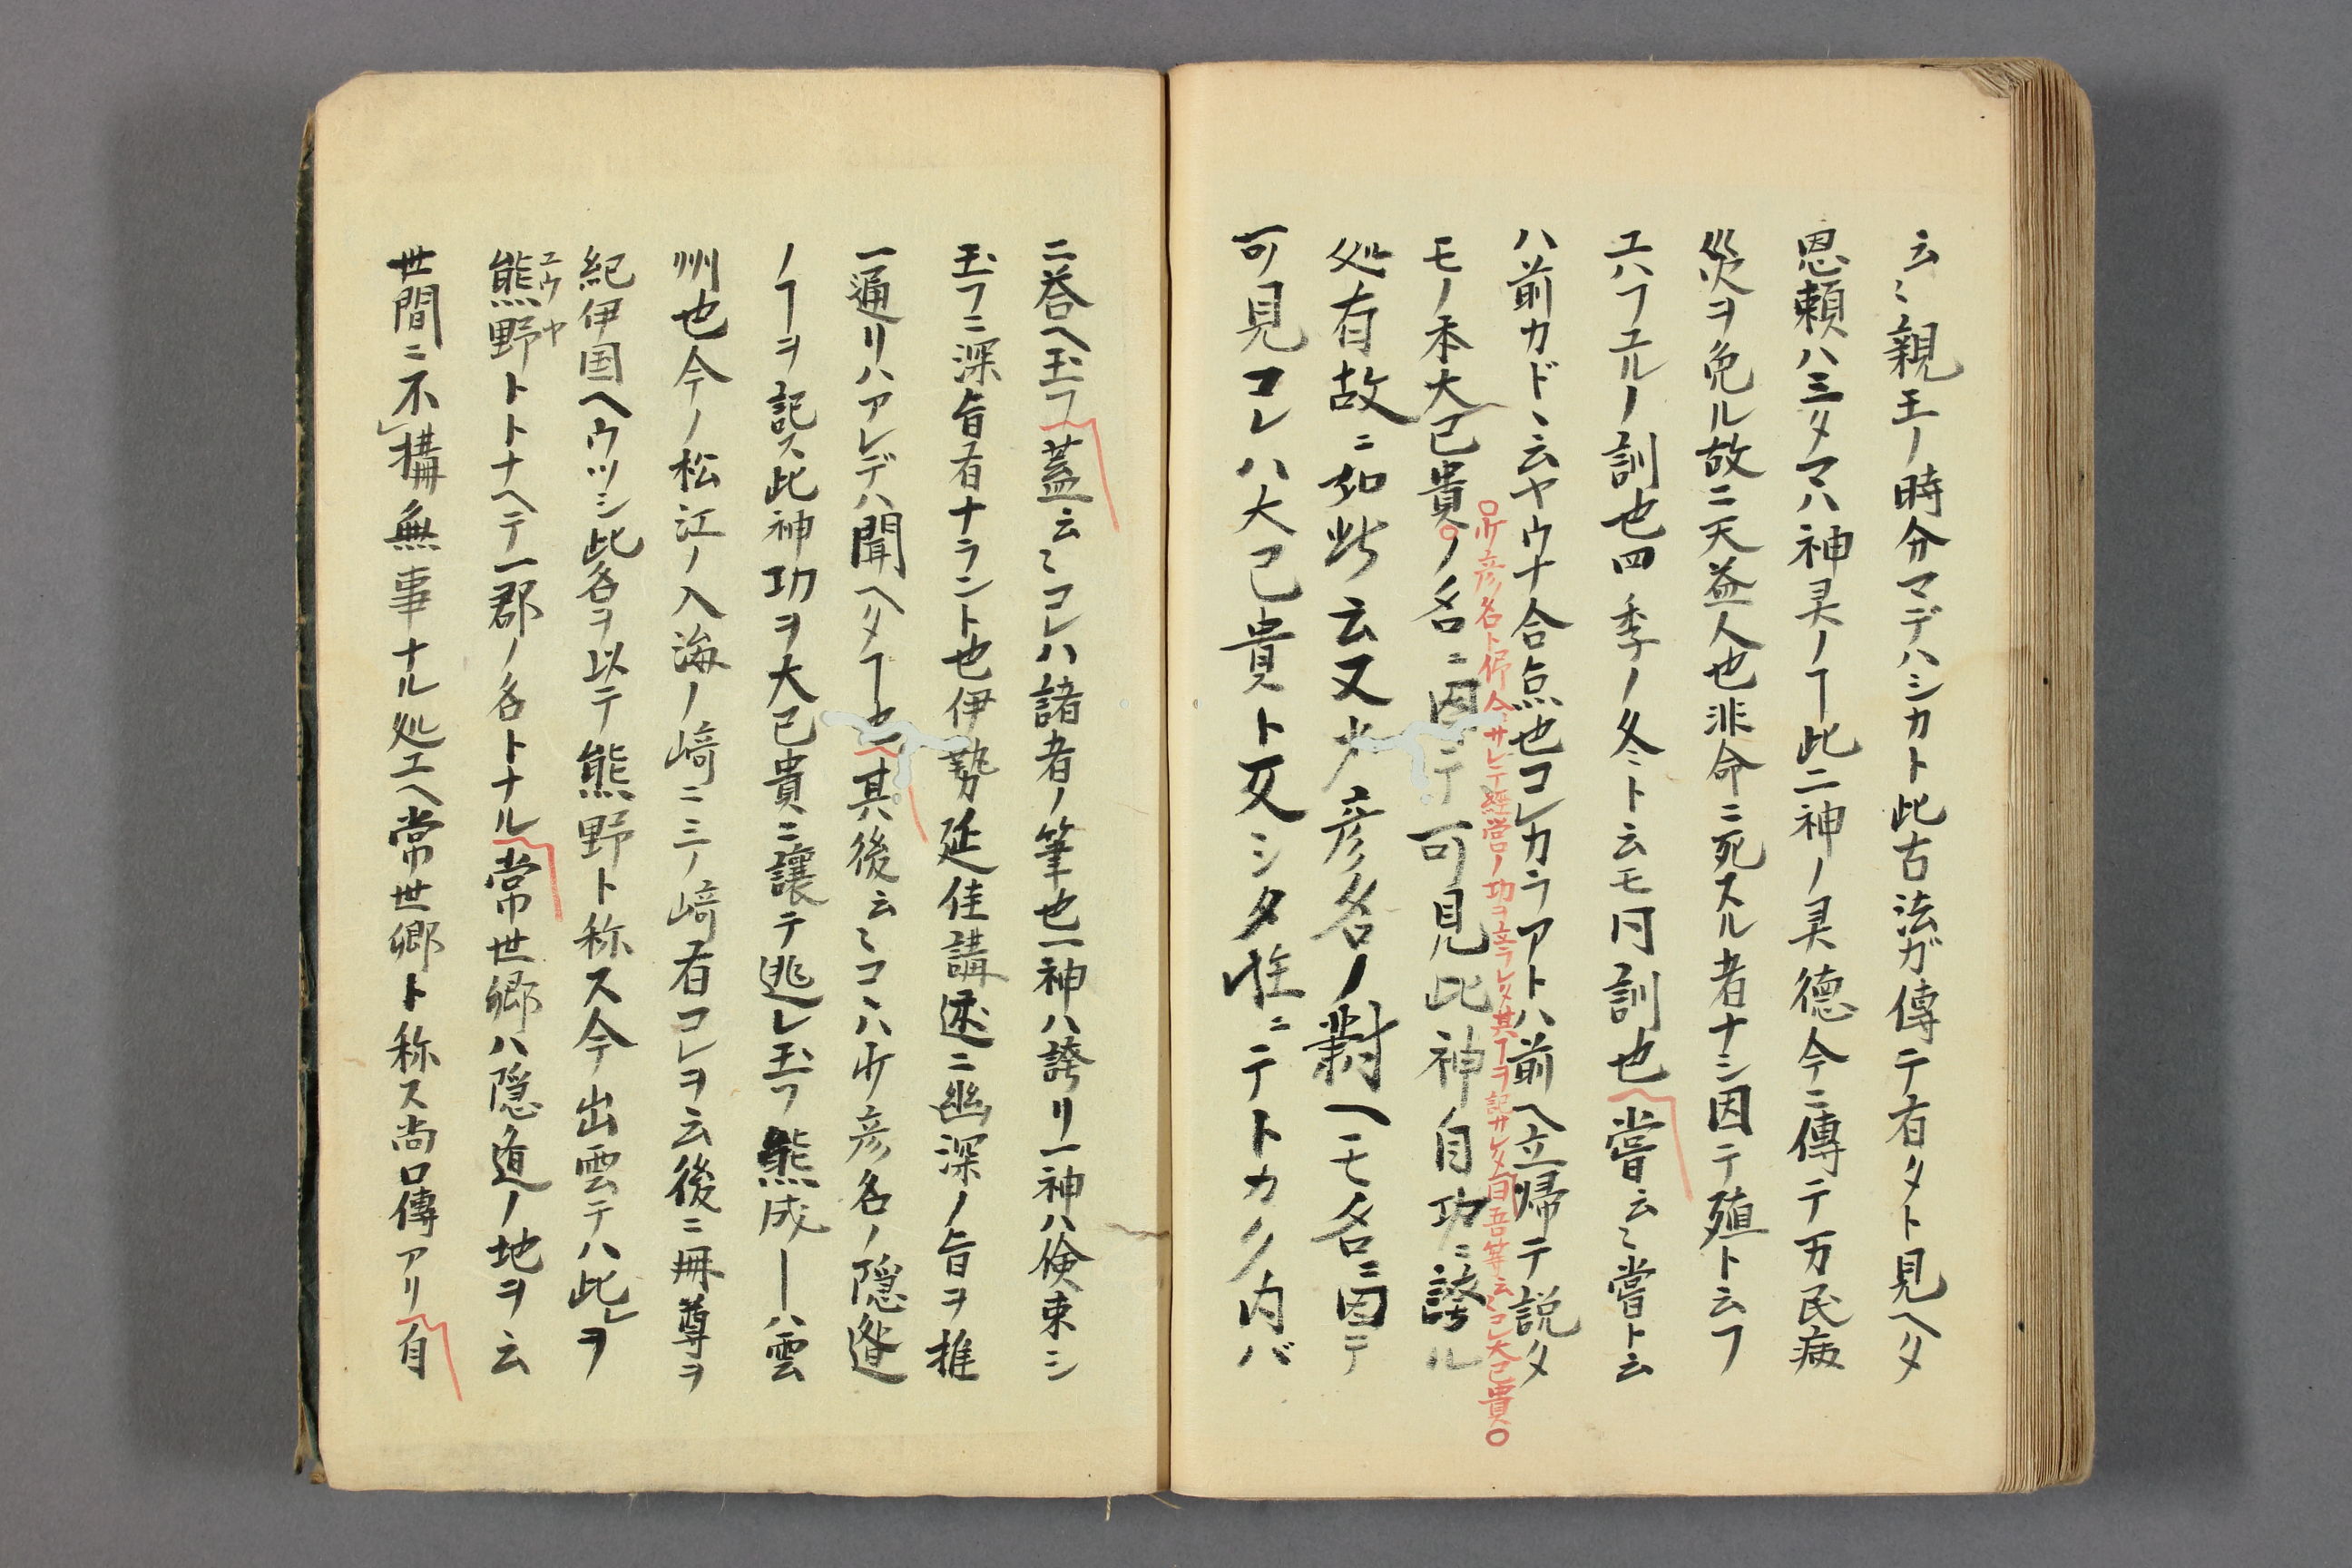 云〻親王ノ時分マデハシカト此古法ガ傳テ有タト見ヘタ
恩頼ハミタマハ神灵ノヿ此二神ノ灵德今ニ傳テ万民病
災ヲ免ル故ニ天益人也非命ニ死スル者ナシ因テ殖ト云フ
エハフユルノ訓也四季ノ冬ト云モ同訓也嘗云〻嘗ト云
ハ前カド云ヤウナ合点也コレカラアトハ前ヘ立帰テ説タ
○少彦名ト仰合サレテ經営ノ功ヲ立ラレタ其ヿヲ記サレタ自吾等云〻コレ大己貴○
モノ本大己貴○ノ名ニ因テ可見此神自功ニ誇ル
処有故ニ如此云又少彦名ノ對ヘモ名ニ因テ
可見コレハ大己貴ト反シタ性ニテトカク内バ
ニ答ヘ玉フ蓋云〻コレハ諸者ノ筆也一神ハ誇リ一神ハ倹束シ
玉フニ深旨有ナラント也伊勢延佳講述ニ幽深ノ旨ヲ推
一通リハアレデハ聞ヘタヿ也其後云〻コヽハ少彦名ノ隠遯
ノヿヲ記ス此神功ヲ大己貴ニ讓テ逃レ玉フ熊成―ハ雲
州也今ノ松江ノ入海ノ﨑ニ三ノ﨑有コレヲ云後ニ冊尊ヲ
紀伊国ヘウツシ此名ヲ以テ熊野ト称ス今出雲テハ此レヲ
熊野トトナヘテ一郡ノ名トナル常世郷ハ隠遁ノ地ヲ云
ユウヤ
世間ニ不レ搆無事ナル処エヘ常世郷ト称ス尚口傳アリ自